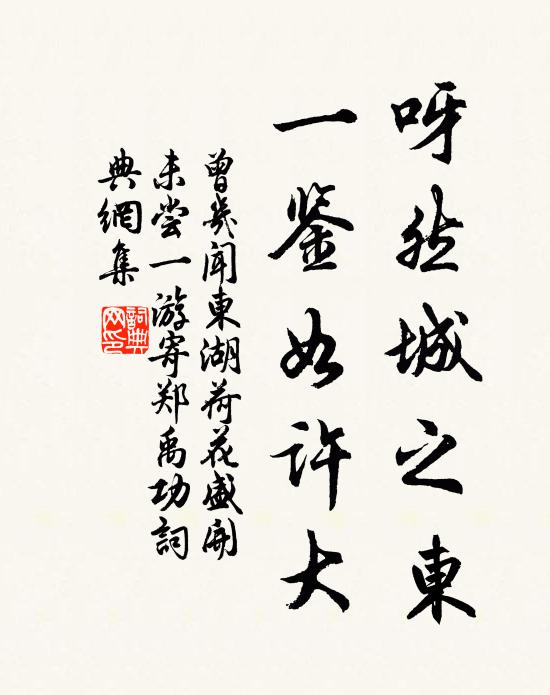 呀然城之東
一鉴如许大
曾幾闻東湖荷花盛開
未尝一游寄郑禹功詞
典網集
詞典网印